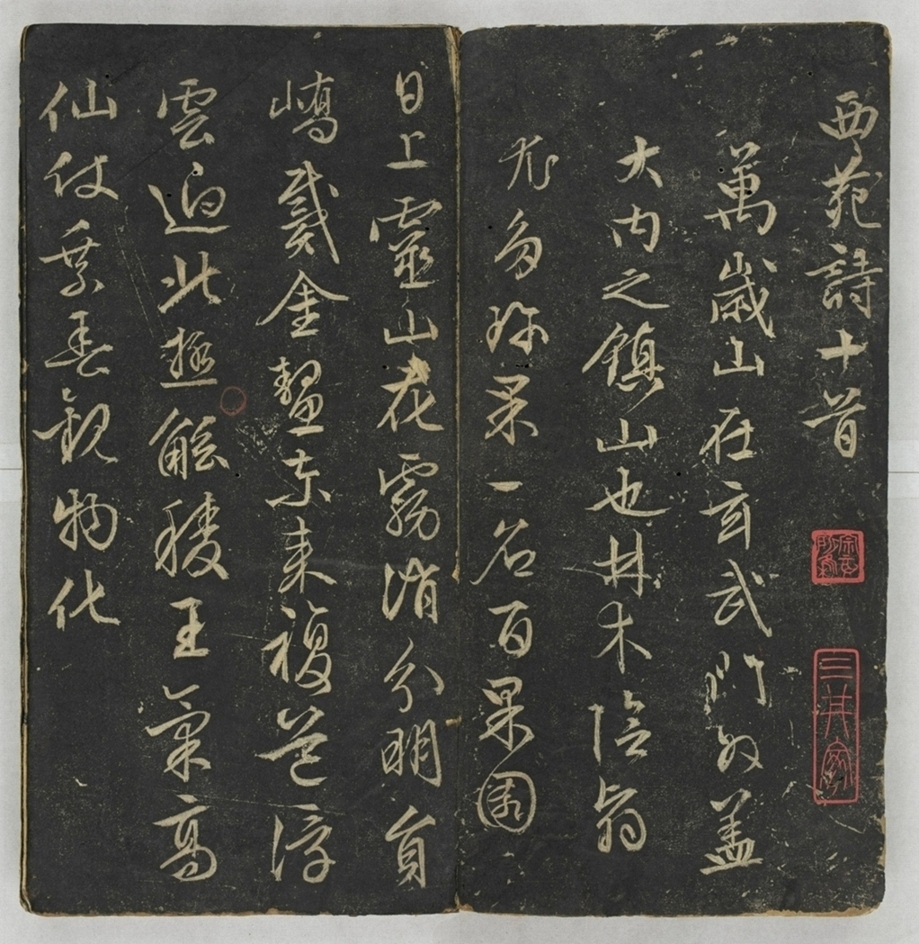 西苑詩十首
萬歲山在玄武門外蓋
大內之鎮山也林木陰翳
尤多珍果一名百果園
日上靈山花霧消分明員
嶠戴金鼇東來複道浮
雲迥北極觚稜王氣高
仙仗乘春觀物化
三井家